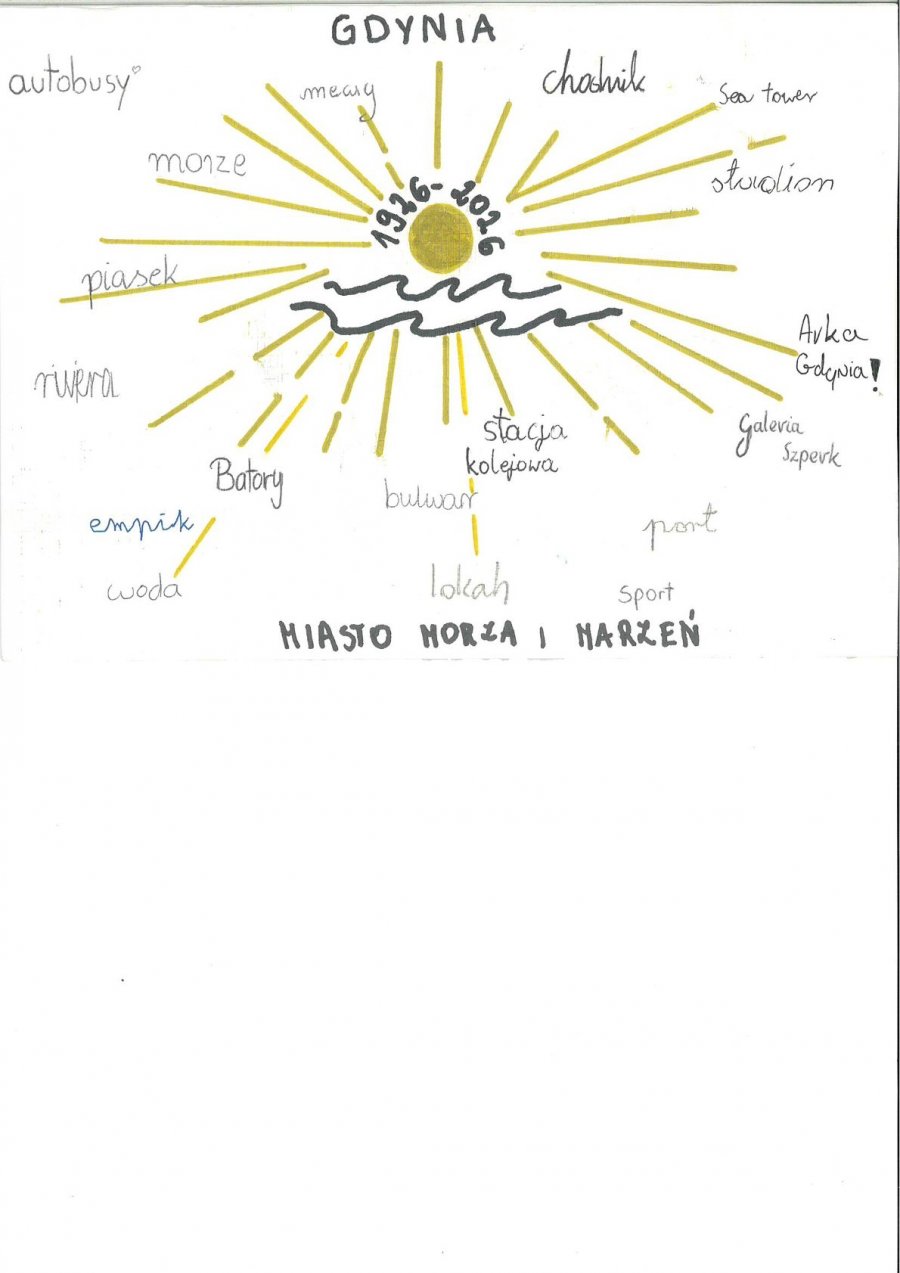 GDYNIA
autobusy
mewy
chodnik
Sea tower
morze
stadion
1926-2026
piasek
Arka
Gdynia!
riwiera
Galeria
Szperk
stacja
kolejowa
Batory
bulwar
empik
port
woda
lokah
sport
MIASTO MORZA I MARZEŃ